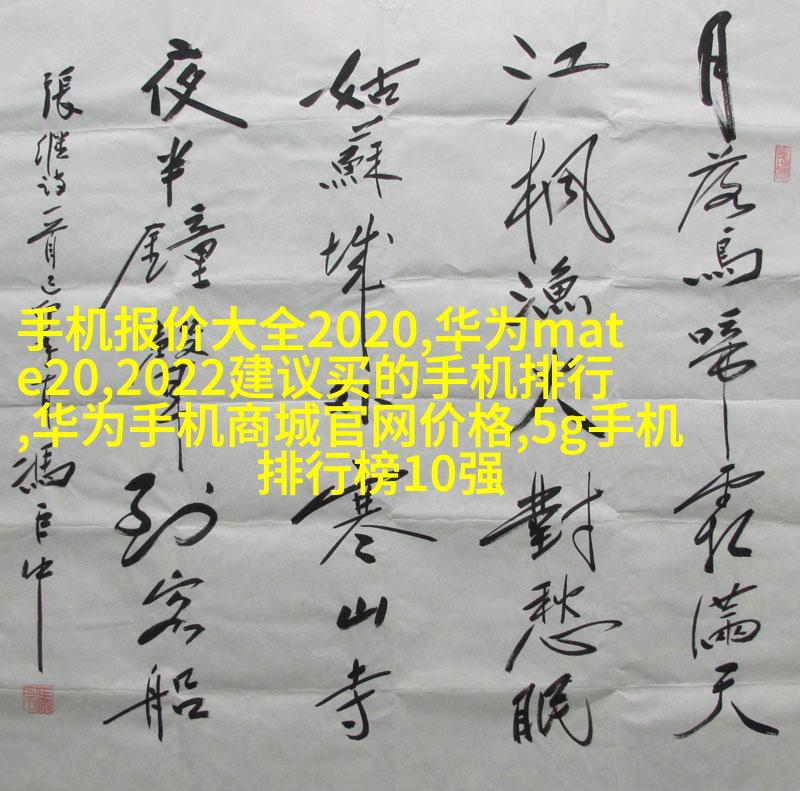 月落烏啼霜滿天
江楓漁火對愁眠
姑蘇城外寒山寺
夜半鐘聲到客船
張继诗一首 馮
手机报价大全2020,华为mat
e20,2022建议买的手机排行
,华为手机商城官网价格,5g手机
排行榜10强